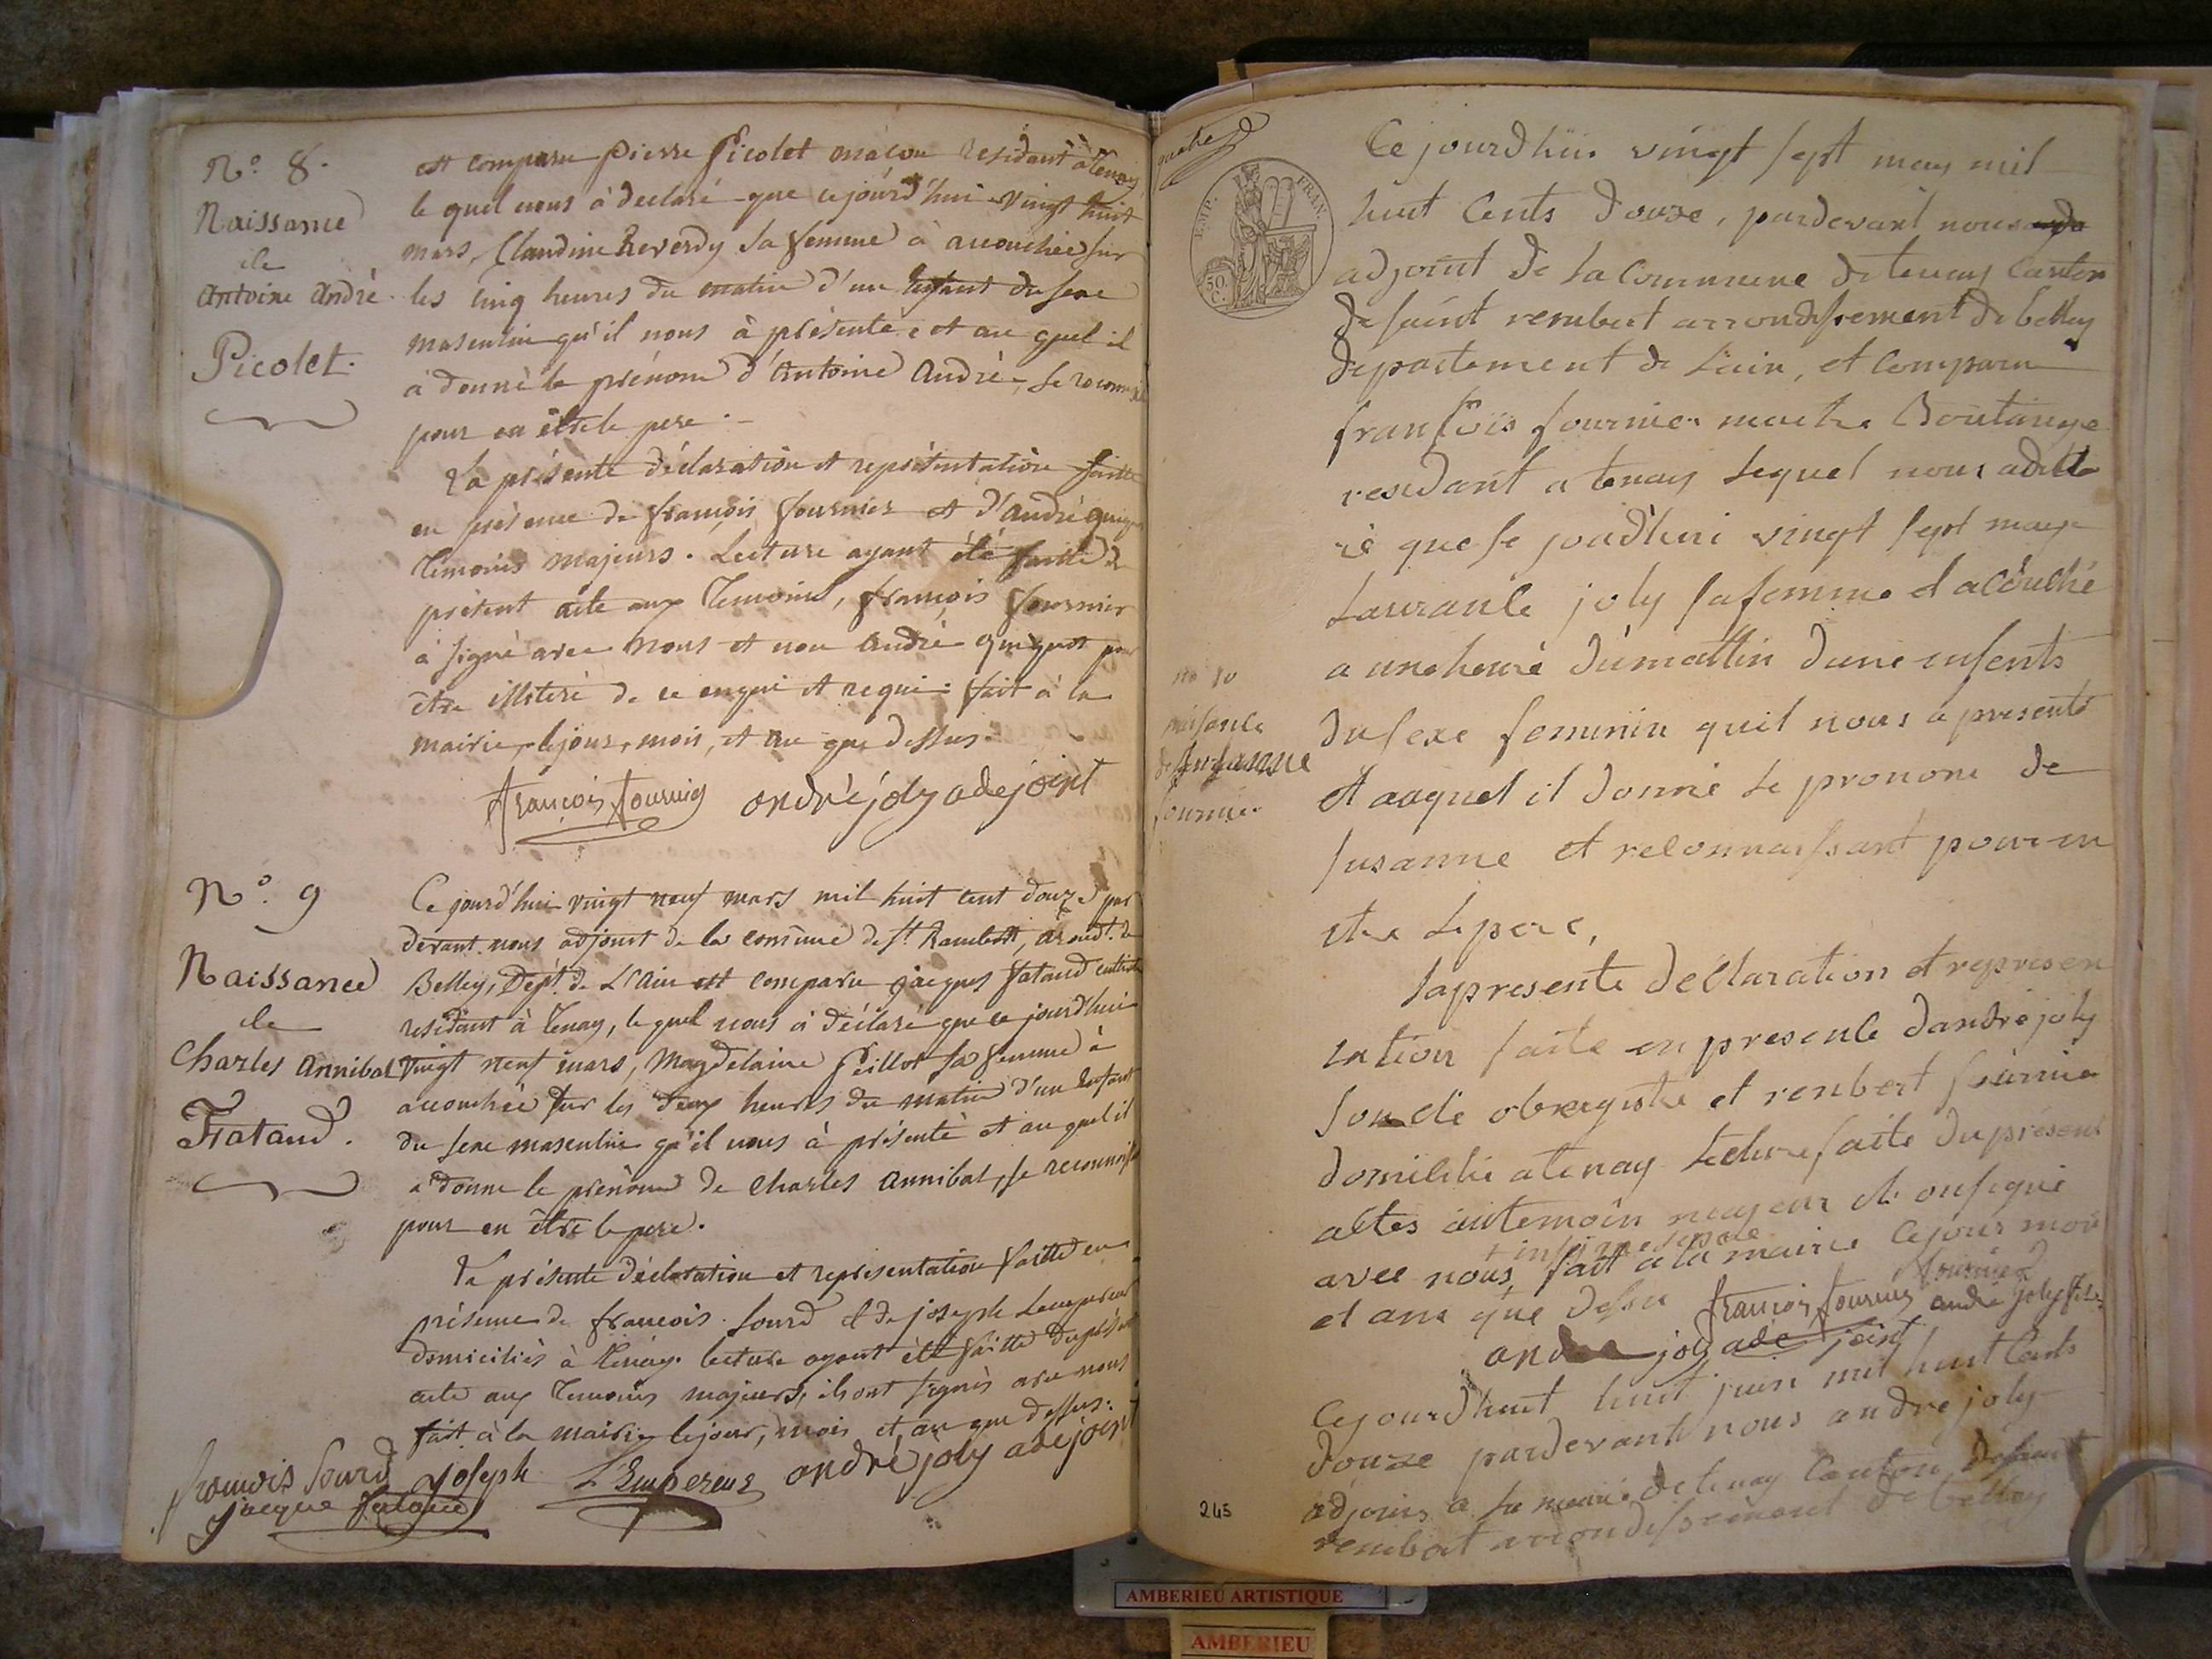 N.o 8.
Naissance
de
Antoine André
Picolet.
est comparu Pierre Picolet mâcon residant à Tenay
le quel nous à declaré que cejourd'hui vingt huit
mars, Claudine Reverdy sa femme à accouchée sur
les cinq heures du matin d'un Enfant du sexe
masculin qu'il nous à présenté et au quel il
à donné le prénom d'Antoine André, se reconnais
pour en être le pere.
La présente déclaration et représentation faitte
en présence de françois fournier et d'André
Temoins majeurs. Lecture ayant été faitte du
présent acte aux Temoins, françois fournier
à signé avec nous et non André pour
être illiteré de ce enquis et requis: fait à la
mairie, le jour, mois, et an que dessus.
françois fournier andré joly adejoint
N.o 9
Naissance
de
Charles Annibal
Fataud.
Ce jourd'hui vingt neuf mars mil huit cent douze par
devant nous adjoint de la comune de St. Rambert, arondt. de
Belley, Dépt. de L'Ain est comparu Jacques fataud
residant à Tenay, le quel nous à déclaré que ce jourd'hui
vingt neuf mars, Magdelaine Peillot sa femme à
accouchée sur les deux heures du matin d'un Enfant
du sexe masculin qu'il nous à présenté et au quel il
à donné le prénom de Charles Annibal, se reconnoiss
pour en être le pere.
La présente déclaration et représentation faitte en
présence de françois Sourd et de joseph Lempereur
domiciliés à Tenay. lecture ayant été faitte du présent
acte aux Temoins majeurs, ils ont signés avec nous
fait à la mairie le jour, mois et an que dessus.
francois Sourd Joseph L'Empereur andré joly adejoint
jacque fataud
EMP. FRAN.
50 C.
Ce jourdhui vingt sept may mil
huit Cents douze, pardevant nous
adjoint de la Commune de tenay Canton
de saint rembert arrondissement de belley
departement de Lain, et Comparu
françois fournier maitre Boulange
residant a tenay Lequel nous a decla
ré que se jourdhui vingt sept may
Laurance joly sa femme et acouché
a une heure du mattin dune enfents
du sexe feminin quil nous a presenté
et auquel il donné Le pronom de
susanne et reconnaissant pour en
etre Le pere,
no 10
naisance
de susanne
fournier
la presente déclaration et represen
tation faite en presence dandré joly
et renbert fournier
domicilié a tenay Lecture faite du présent
actes au temoin majeur et onsigné
avec nous fait a la mairie Ce jour mois
et ans que desu françois fournier andré joly fils
andre joly ade joint
Cejourdhuit huit juin mil huit Cents
douze pardevant nous andre joly
adjoins a la mairie de tenay Canton desaint
renbert arrondissement de belley
245
AMBERIEU ARTISTIQUE
AMBERIEU